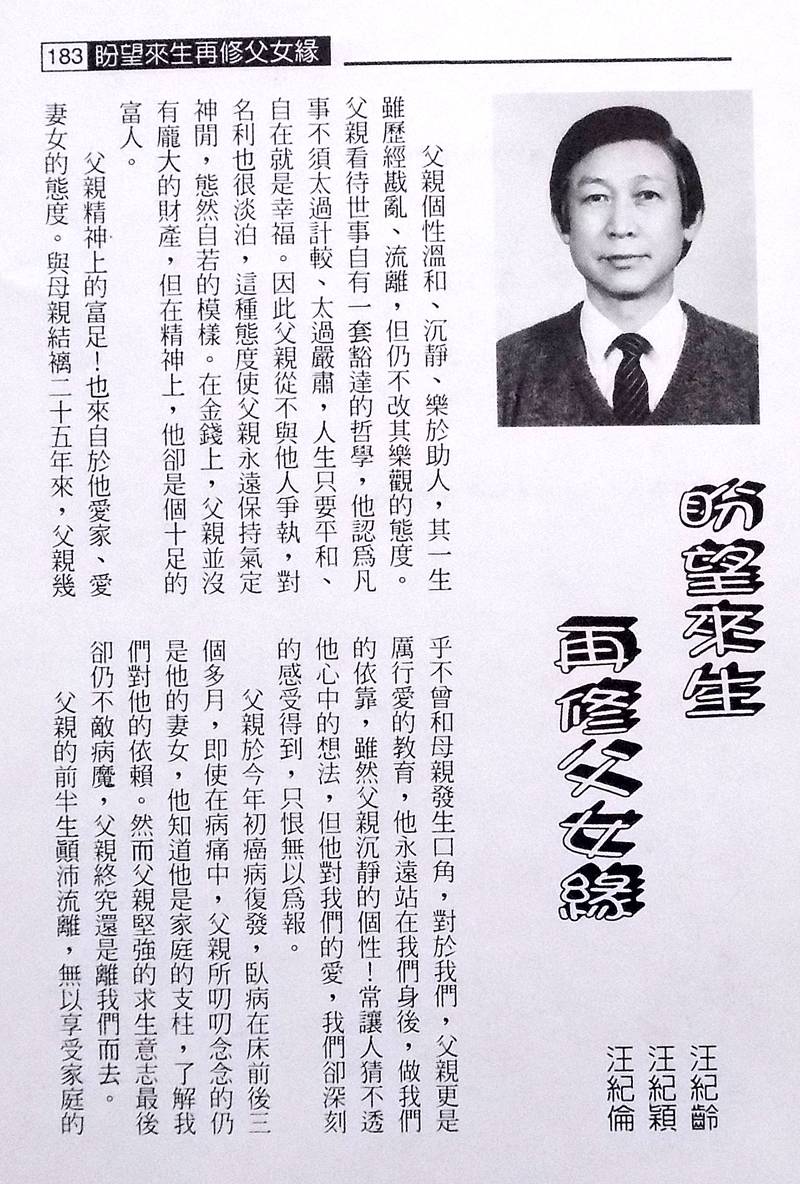 183 盼望來生再修父女緣
盼望來生
再修父女緣
汪紀齡
汪紀穎
汪紀倫
父親個性溫和、沉靜、樂於助人，其一生
雖歷經戡亂、流離，但仍不改其樂觀的態度。
父親看待世事自有一套豁達的哲學，他認爲凡
事不須太過計較、太過嚴肅，人生只要平和、
自在就是幸福。因此父親從不與他人爭執，對
名利也很淡泊，這種態度使父親永遠保持氣定
神閒，態然自若的模樣。在金錢上，父親並沒
有龐大的財產，但在精神上，他卻是個十足的
富人。
父親精神上的富足！也來自於他愛家、愛
妻女的態度。與母親結褵二十五年來，父親幾
乎不曾和母親發生口角，對於我們，父親更是
厲行愛的教育，他永遠站在我們身後，做我們
的依靠，雖然父親沉靜的個性！常讓人猜不透
他心中的想法，但他對我們的愛，我們卻深刻
的感受得到，只恨無以爲報。
父親於今年初癌病復發，臥病在床前後三
個多月，即使在病痛中，父親所叨叨念念的仍
是他的妻女，他知道他是家庭的支柱，了解我
們對他的依賴。然而父親堅強的求生意志最後
卻仍不敵病魔，父親終究還是離我們而去。
父親的前半生顚沛流離，無以享受家庭的